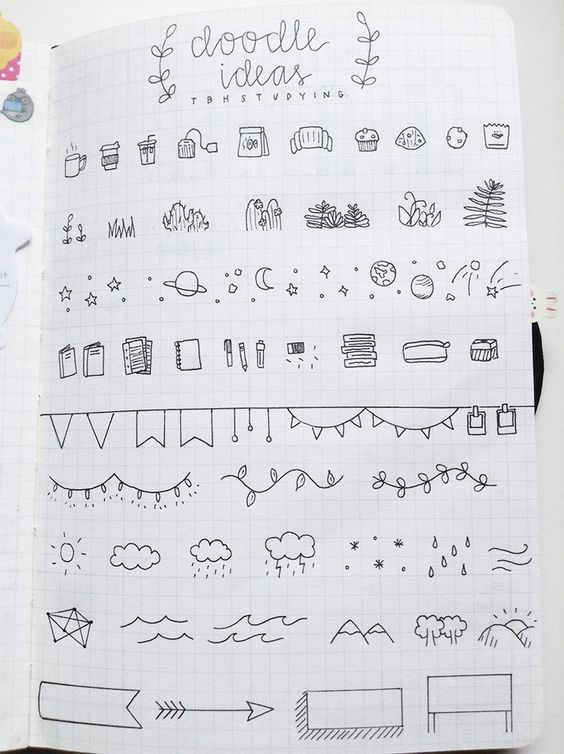 doodle
ideas
TBHSTUDYING